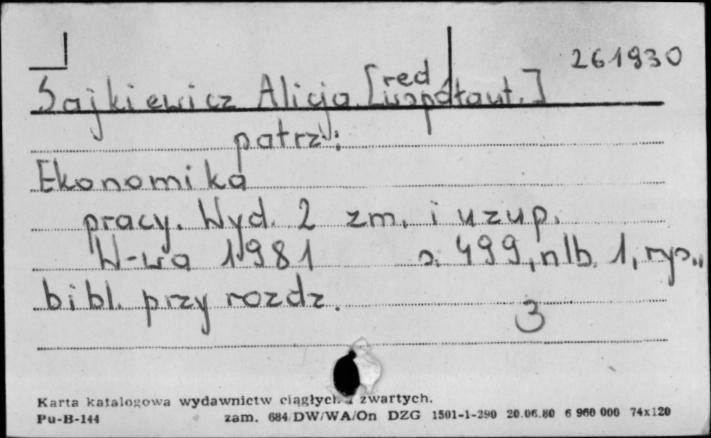 261930
Sajkiewicz Alicja [red
współaut.]
patrz:
Ekonomika
pracy. Wyd. 2 zm. i uzup.
W-wa 1981 s. 499, nlb. 1, rys.,
bibl. przy rozdz.
3
Karta katalogowa wydawnictw ciągłych i zwartych.
Pu-B-144 zam. 684/DW/WA/On DZG 1501-1-290 20.06.80 6 960 000 74x120